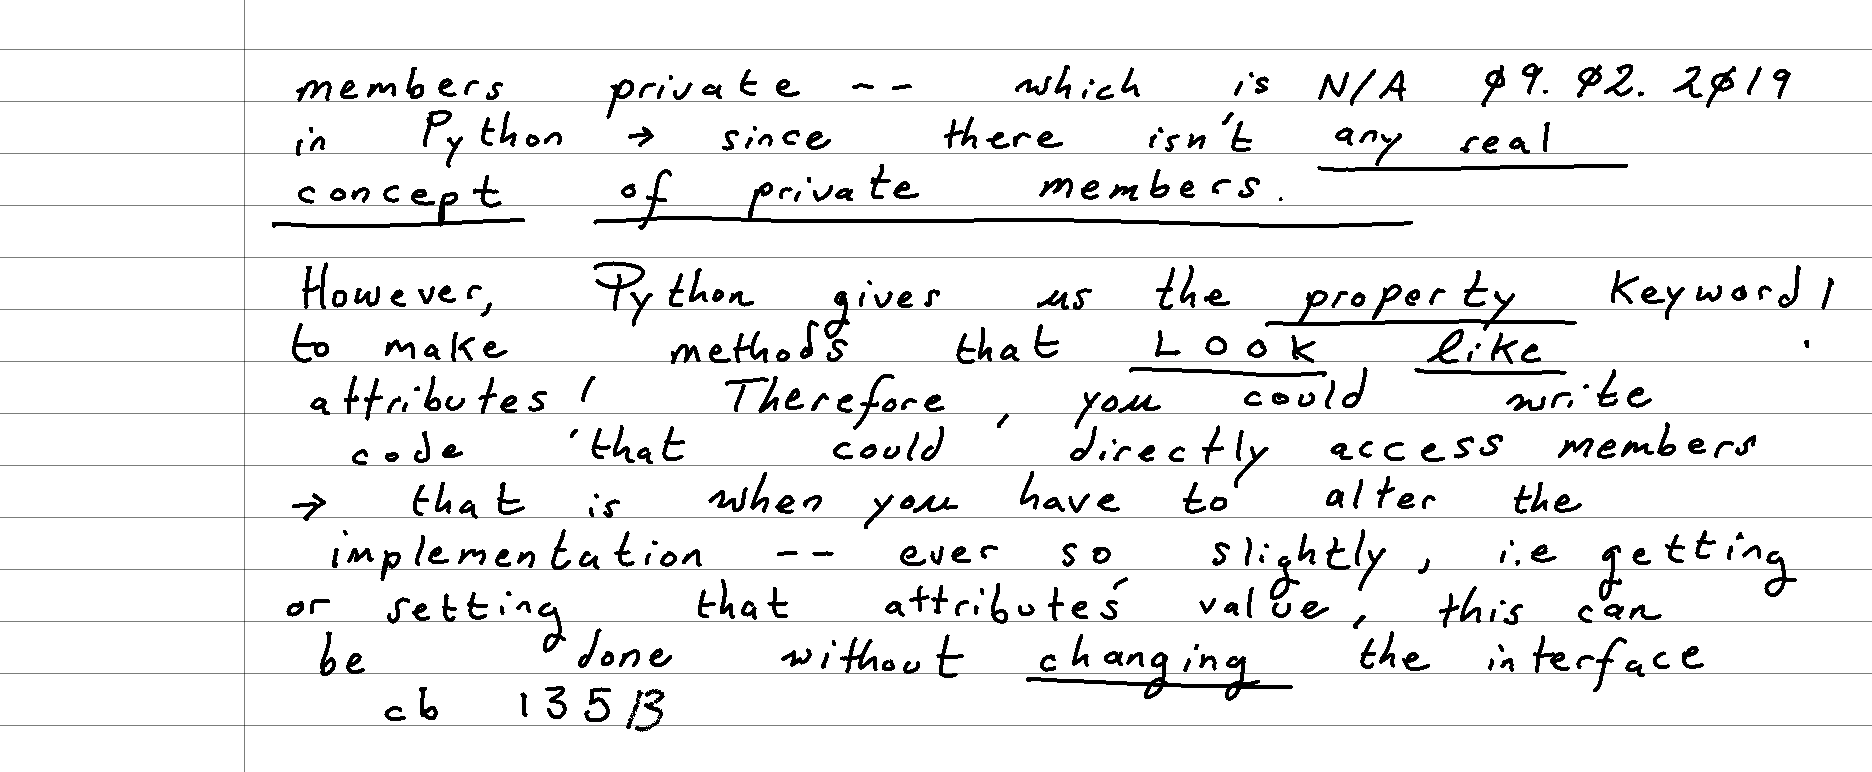 members private -- which is N/A 09.02.2019
in Python → since there isn't any real
concept of private members.
However, Python gives us the property keyword!
to make methods that LOOK like
attributes! Therefore, you could write
code that could directly access members
→ that is when you have to alter the
implementation -- ever so slightly, i.e getting
or setting that attribute's value, this can
be done without changing the interface
cb 135B